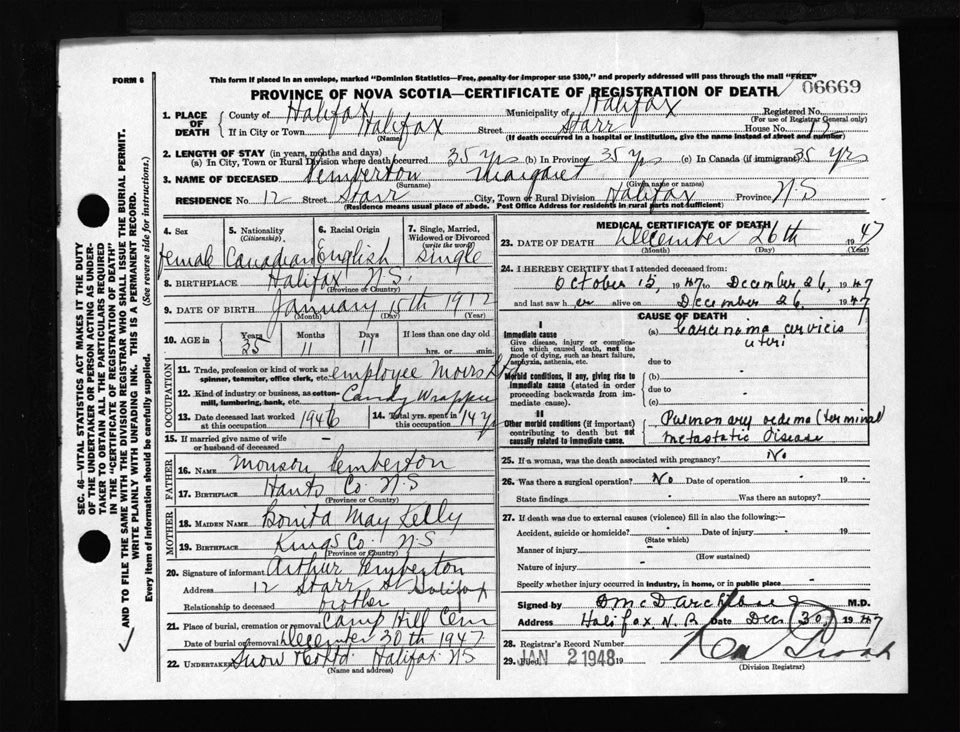 FORM 6
This form if placed in an envelope, marked "Dominion Statistics—Free, penalty for improper use $300," and properly addressed will pass through the mail "FREE"
PROVINCE OF NOVA SCOTIA—CERTIFICATE OF REGISTRATION OF DEATH 06669
1. PLACE OF DEATH
County of Halifax Municipality of Halifax Registered No.
(For use of Registrar General only)
If in City or Town Halifax Street Starr House No. 12
(Name) (If death occurred in a hospital or institution, give the name instead of street and number)
2. LENGTH OF STAY (in years, months and days)
(a) In City, Town or Rural Division where death occurred 35 yrs (b) In Province 35 yrs (c) In Canada (if immigrant) 35 yrs
3. NAME OF DECEASED Pemberton Margaret
(Surname) (Given name or names)
RESIDENCE No. 12 Street Starr City, Town or Rural Division Halifax Province N.S
(Residence means usual place of abode. Post Office Address for residents in rural parts not sufficient)
4. Sex
female
5. Nationality (Citizenship)
Canadian
6. Racial Origin
English
7. Single, Married, Widowed or Divorced (write the word)
Single
8. BIRTHPLACE Halifax N.S.
(Province or Country)
9. DATE OF BIRTH January 15th 1912
(Month) (Day) (Year)
10. AGE in Years Months Days If less than one day old
35 11 11 hrs. or min.
OCCUPATION
11. Trade, profession or kind of work as spinner, teamster, office clerk, etc. employee Moirs Ltd
12. Kind of industry or business, as cotton-mill, lumbering, bank, etc. Candy Wrapper
13. Date deceased last worked at this occupation 1946
14. Total yrs. spent in this occupation 14 yrs
15. If married give name of wife or husband of deceased –
FATHER
16. NAME Pemberton
17. BIRTHPLACE Hants Co. N.S
(Province or Country)
MOTHER
18. MAIDEN NAME Bonita May Kelly
19. BIRTHPLACE Kings Co. N.S
(Province or Country)
20. Signature of informant Arthur Pemberton
Address 12 Starr St Halifax
Relationship to deceased brother
21. Place of burial, cremation or removal Camp Hill Cem
Date of burial or removal December 30th 1947
22. Undertaker Snow Co Ltd. Halifax N.S
(Name and address)
MEDICAL CERTIFICATE OF DEATH
23. DATE OF DEATH December 26th 1947
(Month) (Day) (Year)
24. I HEREBY CERTIFY that I attended deceased from:
October 15, 1947 to December 26, 1947
and last saw h er alive on December 26, 1947
CAUSE OF DEATH
I
Immediate cause
Give disease, injury or complication which caused death, not the mode of dying, such as heart failure, asphyxia, asthenia, etc.
(a) Carcinoma cervicis
uteri
due to
Morbid conditions, if any, giving rise to immediate cause (stated in order proceeding backwards from immediate cause).
(b)
due to
(c)
II
Other morbid conditions (if important) contributing to death but not causally related to immediate cause.
Pulmonary oedema (terminal
metastatic disease
25. If a woman, was the death associated with pregnancy? No
26. Was there a surgical operation? No Date of operation 19
State findings Was there an autopsy?
27. If death was due to external causes (violence) fill in also the following:—
Accident, suicide or homicide? Date of injury 19
(State which)
Manner of injury
(How sustained)
Nature of injury
Specify whether injury occurred in industry, in home, or in public place
Signed by M.D.
Address Halifax, N.S. Date Dec. 30, 1947
28. Registrar's Record Number
29. Filed JAN 2 1948 19
(Division Registrar)
SEC. 46—VITAL STATISTICS ACT MAKES IT THE DUTY
OF THE UNDERTAKER OR PERSON ACTING AS UNDER-
TAKER TO OBTAIN ALL THE PARTICULARS REQUIRED
IN THE "CERTIFICATE OF REGISTRATION OF DEATH"
AND TO FILE THE SAME WITH THE DIVISION REGISTRAR WHO SHALL ISSUE THE BURIAL PERMIT.
WRITE PLAINLY WITH UNFADING INK. THIS IS A PERMANENT RECORD.
Every item of information should be carefully supplied. (See reverse side for instructions.)